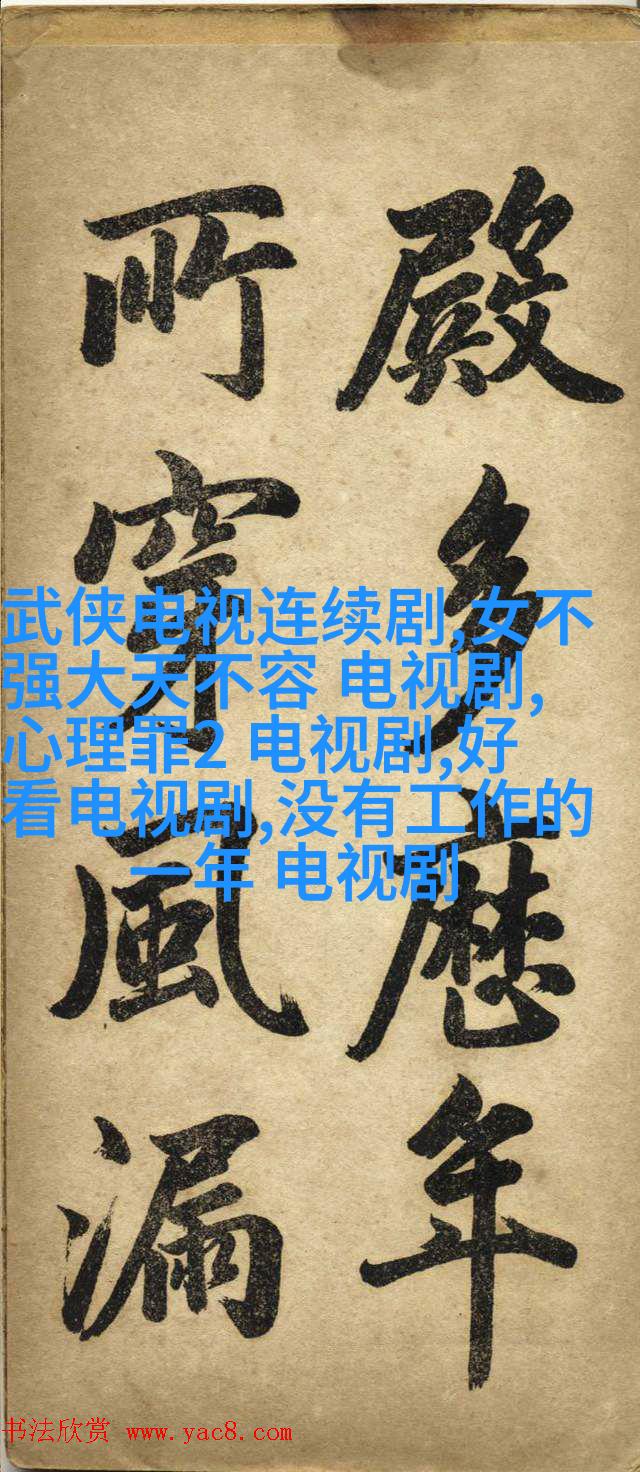 殿多歷年
所穿風漏
武侠电视连续剧,女不
强大天不容 电视剧,
心理罪2 电视剧,好
看电视剧,没有工作的
一年 电视剧
书法欣赏 www.yac8.com